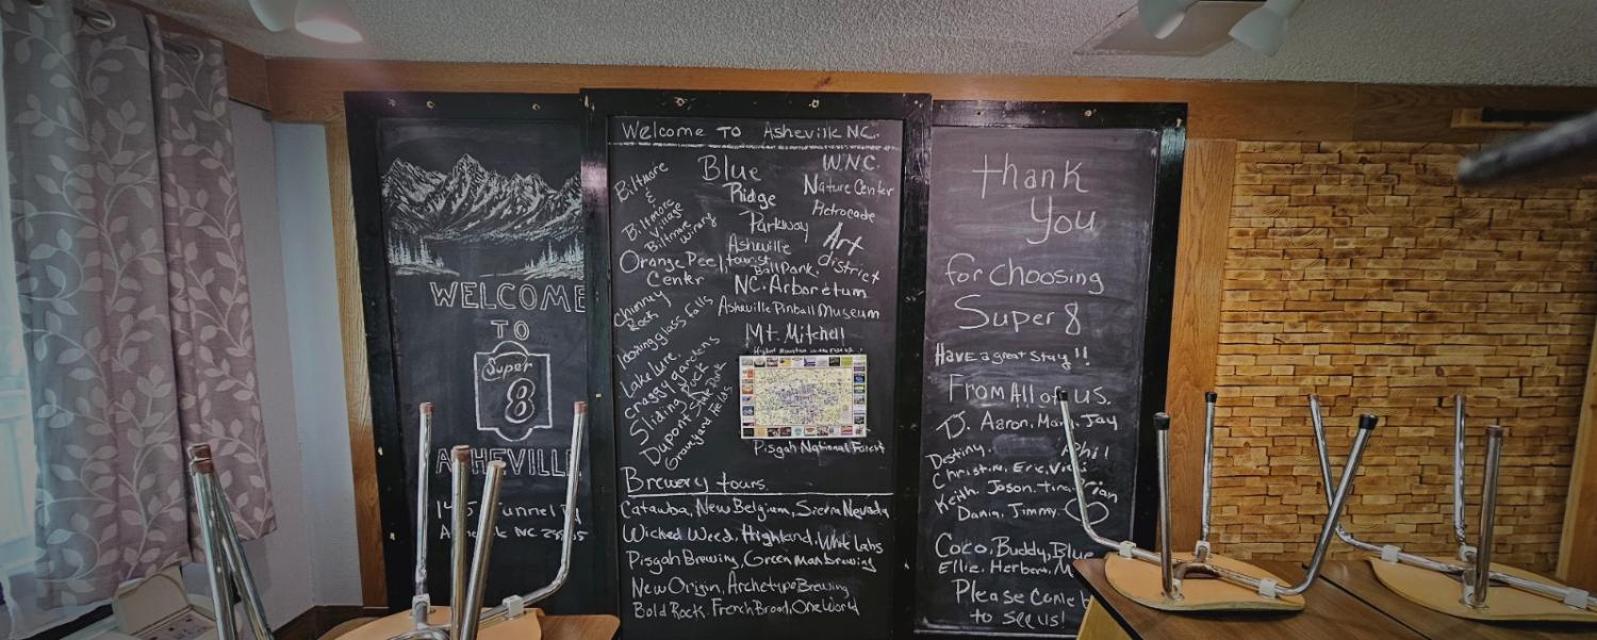 WELCOME
TO
Super
8
ASHEVILLE
Tunnel
NC
Welcome TO Asheville NC.
Biltmore
&
Biltmore
Village
Biltmore
winery
Orange Peel
Center
Chimney
Rock
looking glass falls
Lake lure.
craggy gardens
Sliding Rock
Dupont State Park
Graveyard fields
Blue
Ridge
Parkway
Asheville
tourist
Ball Park.
W.N.C.
Nature Center
Retrocade
Art
district
NC. Arboretum
Asheville Pinball Museum
Mt. Mitchell
Pisgah National Forest
Brewery tours.
Catawba, New Belgium, Sierra Nevada
Wicked Weed, Highland, White labs
Pisgah Brewing, Green man brewing
New Origin, Archetype Brewing
Bold Rock, French Broad, One World
thank
You
for choosing
Super 8
Have a great stay!!
From All of us.
D. Aaron, Mary, Jay
Destiny.
Christine, Eric,
Keith. Jason. tina.
Dania, Jimmy.
Coco, Buddy, Blue
Ellie, Herbert,
Please Come
to see us!